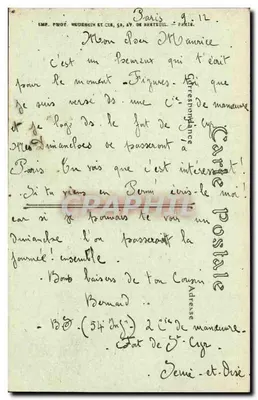 Paris 9.12
IMP. PHOT. NEURDEIN ET CIE, 52, AV. DE BRETEUIL. - PARIS.
Mon cher Maurice
c'est un heureux qui t'écrit
pour le moment - Figures toi que
je suis versé ds une Cie de manoeuvre
et je loge ds le fort de St Cyr
Mes Dimanches se passeront à
Paris. Tu vois que c'est intéressant!
Si tu viens en Permi écris-le moi!
car si je pouvais te voir un
dimanche l'on passerait la
journée ensemble.
Bons baisers de ton Cousin
Bernard
B (54 Inf) 2 Cie de manoeuvre
Fort de St Cyr
Seine-et-Oise
Carte postale
Correspondance
Adresse